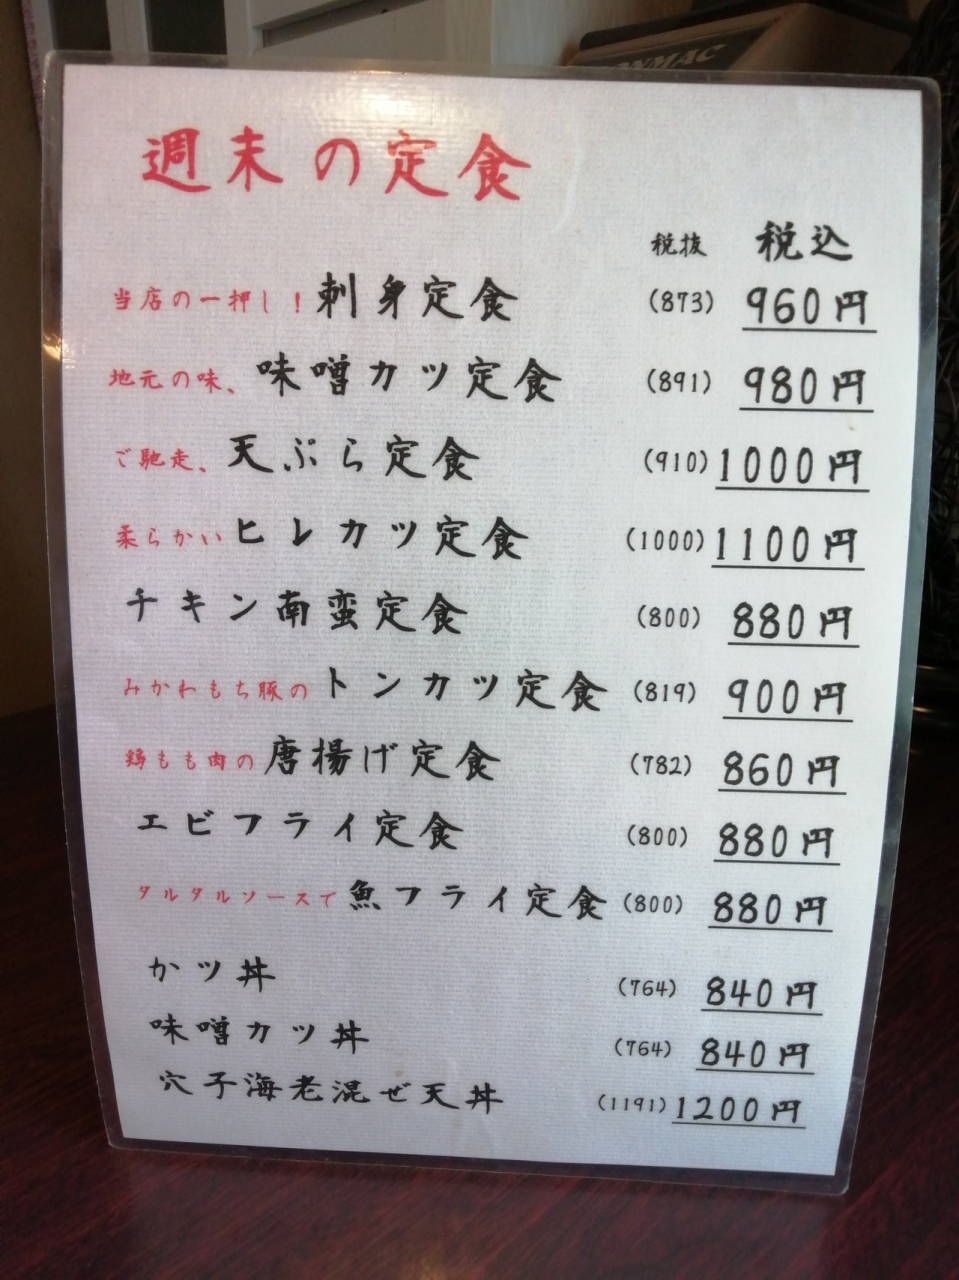 週末の定食
税抜 税込
当店の一押し！刺身定食 (873) 960円
地元の味、味噌カツ定食 (891) 980円
ご馳走、天ぷら定食 (910) 1000円
柔らかいヒレカツ定食 (1000) 1100円
チキン南蛮定食 (800) 880円
みかわもち豚のトンカツ定食 (819) 900円
鶏もも肉の唐揚げ定食 (782) 860円
エビフライ定食 (800) 880円
タルタルソースで魚フライ定食 (800) 880円
かツ丼 (764) 840円
味噌カツ丼 (764) 840円
穴子海老混ぜ天丼 (1191) 1200円